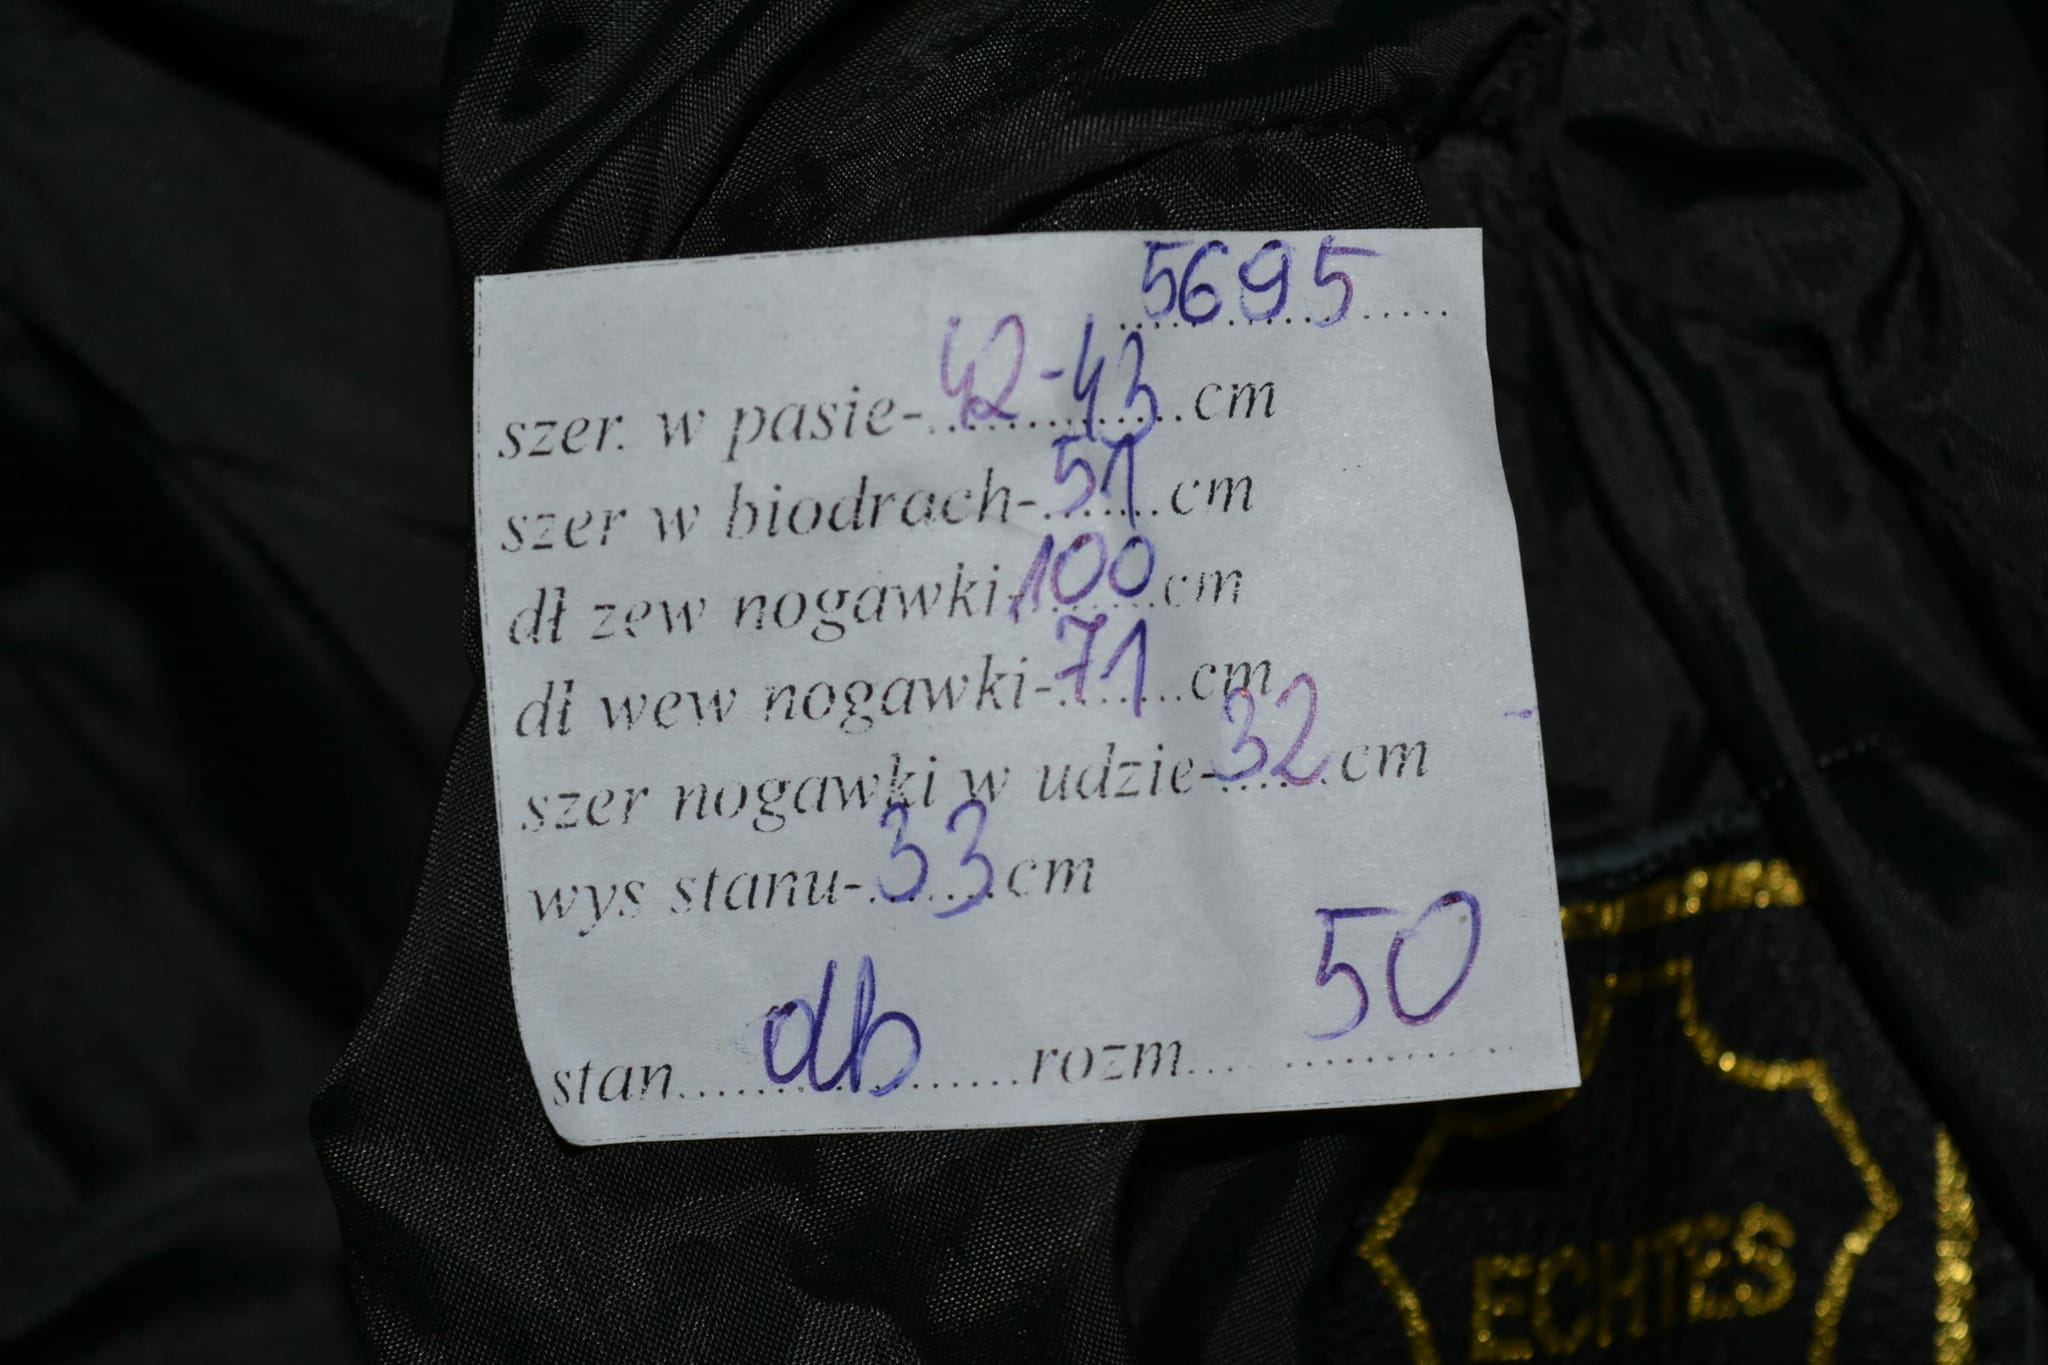 5695
szer. w pasie-42-43cm
szer w biodrach-51cm
dł zew nogawki-100cm
dł wew nogawki-71cm
szer nogawki w udzie-32cm
wys stanu-33cm
stan....db....rozm....50
ECHTES